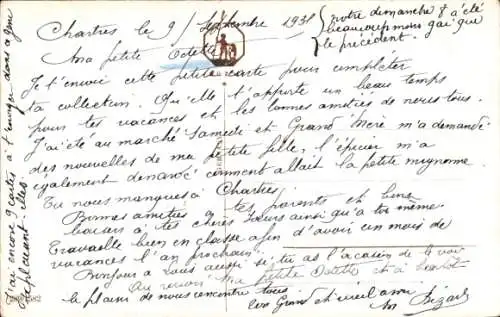 Chartres le 9 / Septembre 1931
{Notre dimanche 8 a été
beaucoup moins gai que
le précédent.
Ma petite Odette
Je t'envoie cette petite carte pour compléter
ta collection. Qu'elle t'apporte un beau temps
pour tes vacances et les bonnes amitiés de nous tous.
J'ai été au marché Samedi et Grand'Mère m'a demandé
des nouvelles de ma petite fille, l'épicier m'a
également demandé comment allait la petite mignonne.
Tu nous manques à Chartres.
Bonnes amitiés tes parents et bons
baisers à tes chères sœurs ainsi qu'à toi même
Travaille bien en classe afin d'avoir un mois de
vacances l'an prochain.
Bonjour à vous aussi si tu as l'occasion de le voir
Au revoir Ma petite Odette et à bientôt
le plaisir de nous rencontrer tous
ton Grand et vieil ami
M Bizard
J'ai encore 9 cartes à t'envoyer dans ce genre